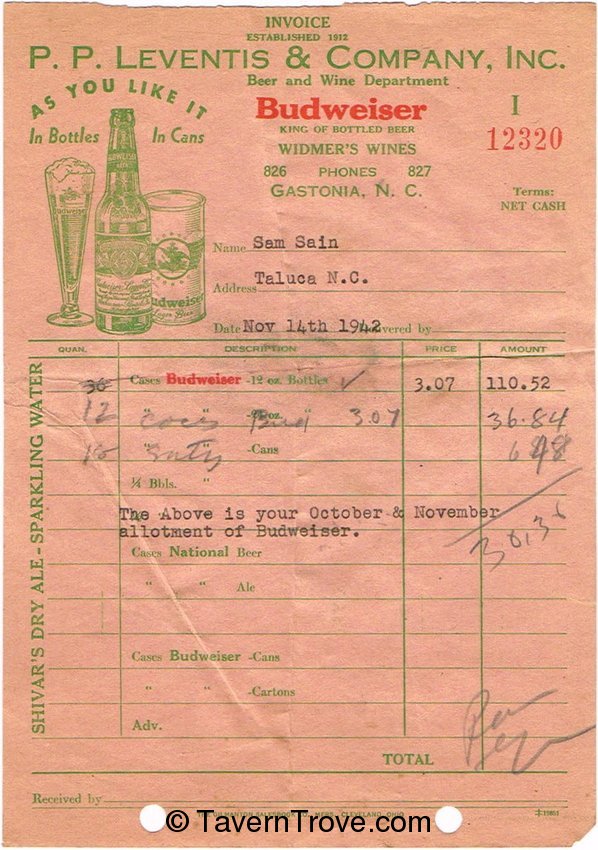 INVOICE
ESTABLISHED 1912
P. P. LEVENTIS & COMPANY, INC.
Beer and Wine Department
AS YOU LIKE IT
In Bottles In Cans
Budweiser
KING OF BOTTLED BEER
WIDMER'S WINES
826 PHONES 827
GASTONIA, N. C.
I
12320
Terms:
NET CASH
Name Sam Sain
Address Taluca N.C.
Date Nov 14th 1942 Delivered by
QUAN. DESCRIPTION PRICE AMOUNT
36 Cases Budweiser -12 oz. Bottles ✓ 3.07 110.52
12 " Bud oz. " 3.07 36.84
" -Cans
¼ Bbls. "
The Above is your October & November
allotment of Budweiser.
30,36
Cases National Beer
" " Ale
Cases Budweiser -Cans
" " -Cartons
Adv.
TOTAL
Received by
SHIVAR'S DRY ALE - SPARKLING WATER
Budweiser
Budweiser
Lager Beer
© TavernTrove.com